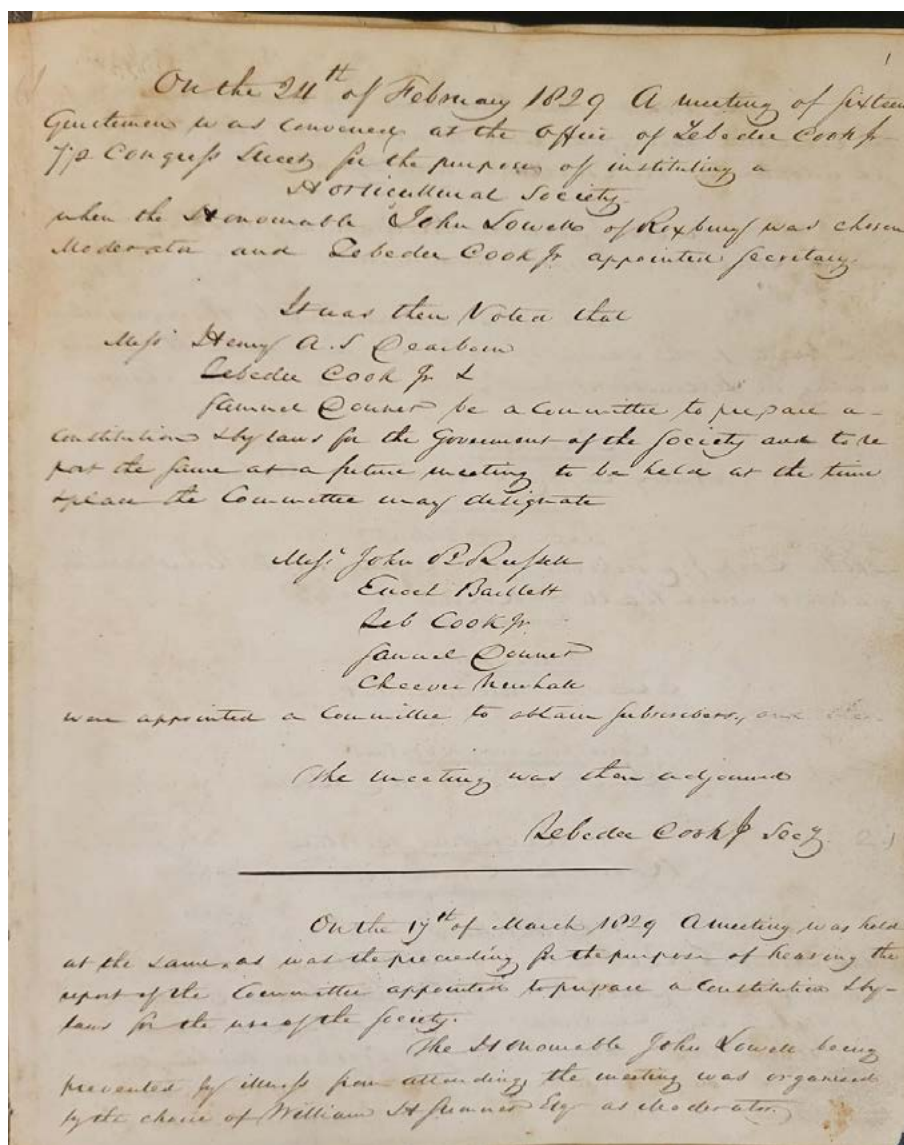 1
On the 24th of February 1829 A meeting of sixteen
Gentlemen was convened at the office of Zebedee Cook Jr
7½ Congress Street for the purpose of instituting a
Horticultural Society
when the Honourable John Lowell of Roxbury was chosen
Moderator and Zebedee Cook Jr. appointed Secretary.
It was then Voted that
Messrs Henry A. S Dearborn
Zebedee Cook Jr &
Samuel Downer be a Committee to prepare a
Constitution & by laws for the Government of the Society and to re
port the same at a future meeting to be held at the time
& place the Committee may designate
Messrs John B Russell
Enoch Bartlett
Zeb Cook Jr.
Samuel Downer
Cheever Newhall
were appointed a Committee to obtain subscribers,
The meeting was then adjourned
Zebedee Cook Jr Secy.
On the 17th of March 1829 A meeting was held
at the same, as was the preceeding for the purpose of hearing the
report of the Committee appointed to prepare a Constitution & by-
laws for the use of the Society.
The Honourable John Lowell being
prevented by illness from attending, the meeting was organised
by the choice of William H Sumner Esqr as Moderator.